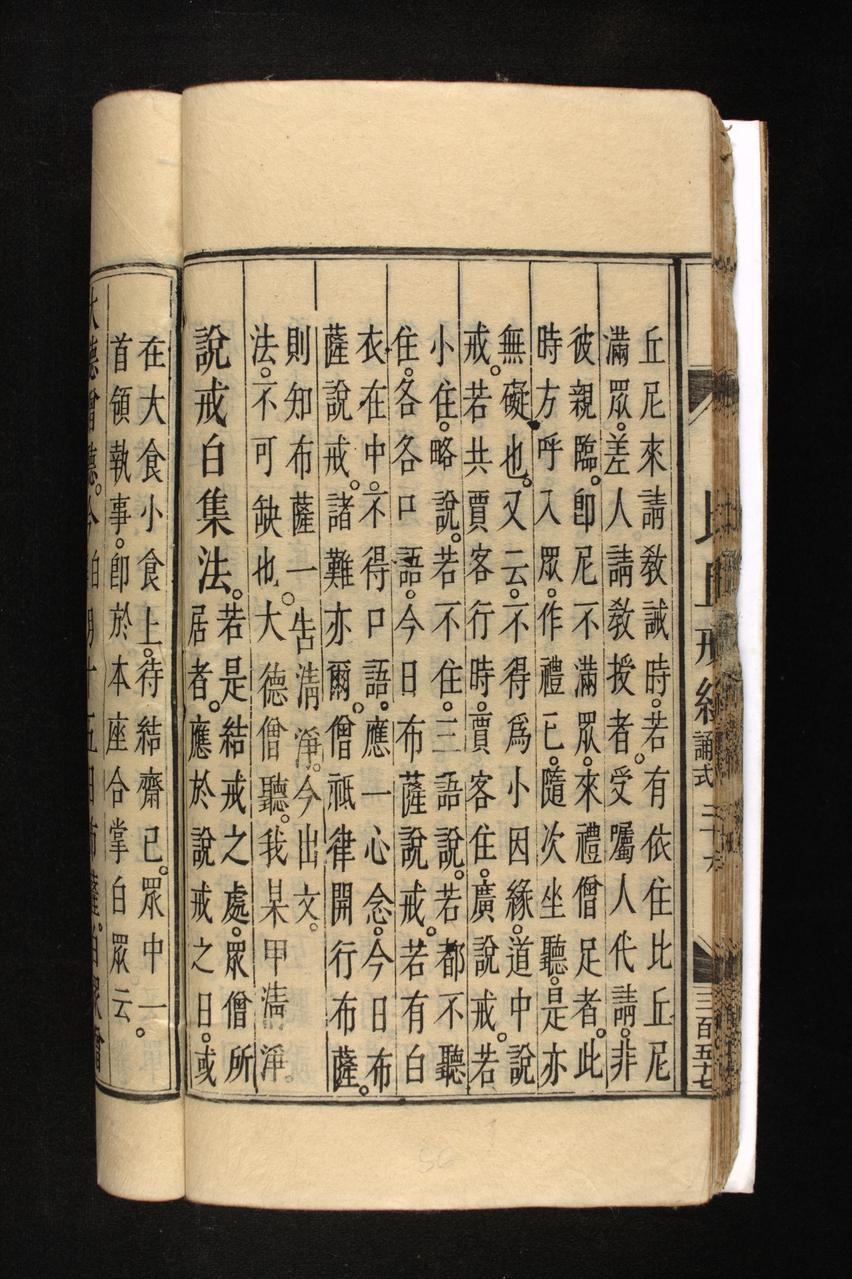 比丘戒經 誦式 三十六 三百五七
丘尼來請教誡時。若有依住比丘尼
滿眾。差人請教授者。受囑人代請。非
彼親臨。卽尼不滿眾。來禮僧足者。此
時方呼入眾。作禮已。隨次坐聽。是亦
無礙也。又云。不得爲小因緣。道中說
戒。若共賈客行時。賈客住。廣說戒。若
小住。略說。若不住。三語說。若都不聽
住。各各口語。今日布薩說戒。若有白
衣在中。不得口語。應一心念。今日布
薩說戒。諸難亦爾。僧祇律開行布薩。
則知布薩一。告清淨。今出文。
法。不可缺也。大德僧聽。我某甲清淨。
說戒白集法。若是結戒之處。眾僧所
居者。應於說戒之日。或
在大食小食上。待結齋已。眾中一。
首領執事。卽於本座合掌白眾云
大德僧聽。今